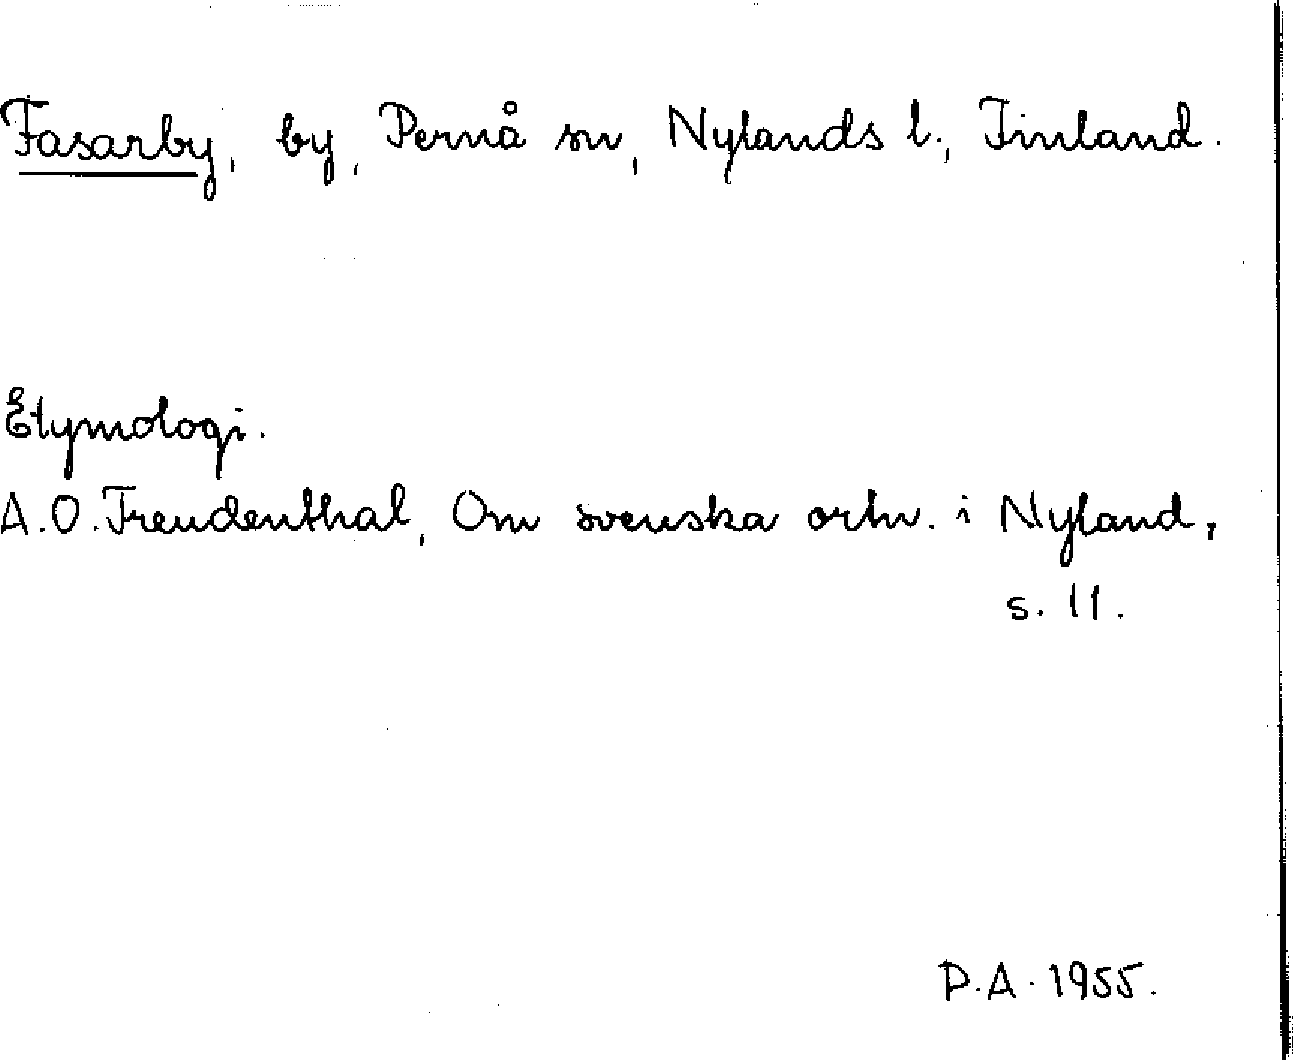 Fasarby, by, Pernå sn, Nylands l., Finland.
Etymologi.
A.O. Freudenthal, Om svenska ortn. i Nyland,
s. 11.
P.A. 1955.